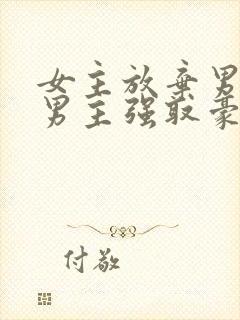 女主放弃男
男主强取豪
付敬